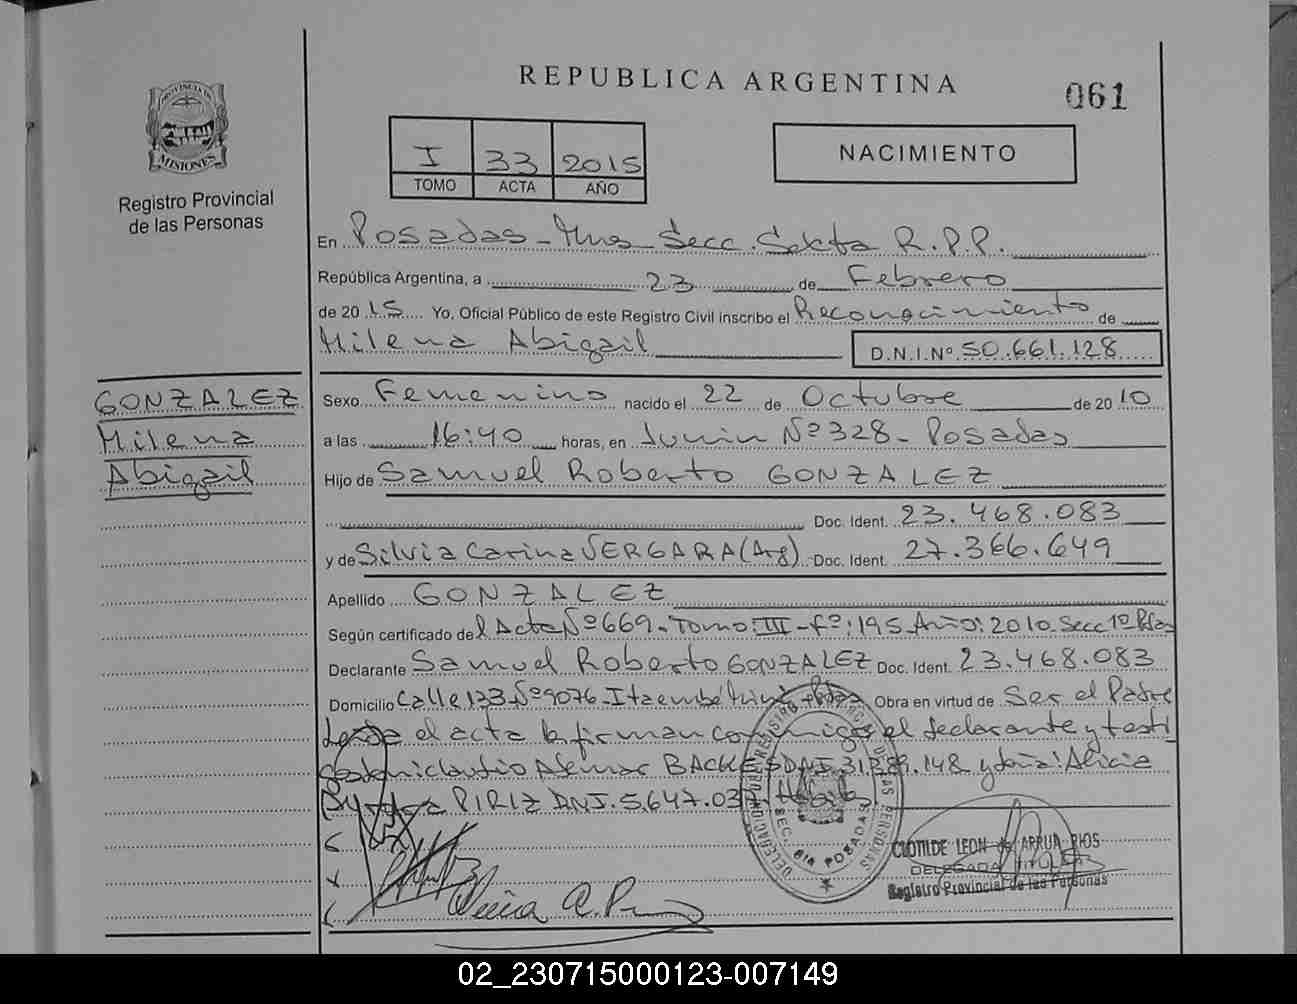 PROVINCIA DE
MISIONES
Registro Provincial
de las Personas
REPUBLICA ARGENTINA
061
I 33 2015
TOMO ACTA AÑO
NACIMIENTO
En Posadas - Mnes Secc. Sexta R.P.P.
República Argentina, a 23 de Febrero
de 2015 Yo, Oficial Público de este Registro Civil inscribo el Reconocimiento de
Milena Abigail D.N.I.Nº 50.661.128
GONZALEZ
Milena
Abigail
Sexo Femenino nacido el 22 de Octubre de 2010
a las 16:40 horas, en Junin Nº 328 - Posadas
Hijo de Samuel Roberto GONZALEZ
Doc. Ident. 23.468.083
y de Silvia Carina VERGARA (Arg) Doc. Ident. 27.366.649
Apellido GONZALEZ
Según certificado del Acta Nº 669 - Tomo: III - Fº: 195 - Año: 2010 - Secc 1º Pdas
Declarante Samuel Roberto GONZALEZ Doc. Ident. 23.468.083
Domicilio Calle 133 Nº 9076 - Itaembé Miní - Pdas Obra en virtud de Ser el Padre
Leída el acta la firman conmigo el declarante y testi
Ademar BACKES DNI 31.389.148 y doña: Alicia
PIRIZ DNI. 5.647.037.
DELEGACION DEL REGISTRO PROVINCIAL DE LAS PERSONAS
SEC. 6ta POSADAS
CLOTILDE LEON de ARRUA RIOS
DELEGADA
Registro Provincial de las Personas
02_230715000123-007149